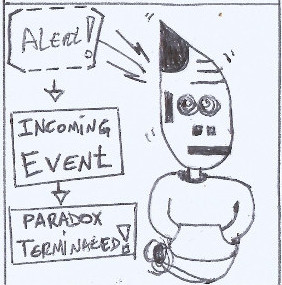 ALERT!
INCOMING
EVENT
PARADOX
TERMINATED!